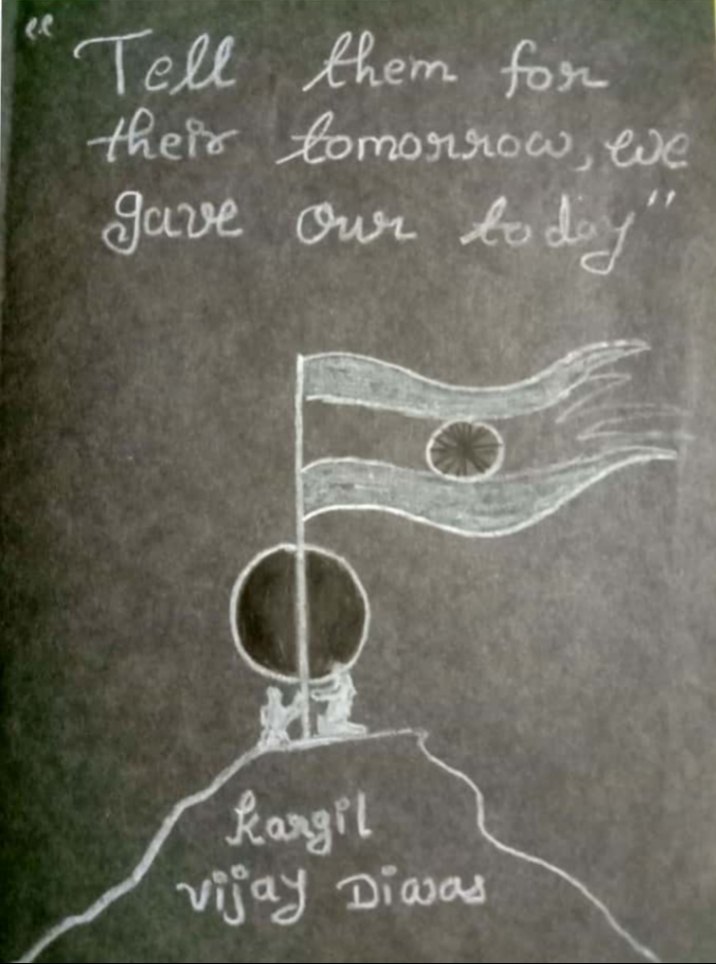 "Tell them for
their tomorrow, we
gave our today"
Kargil
Vijay Diwas